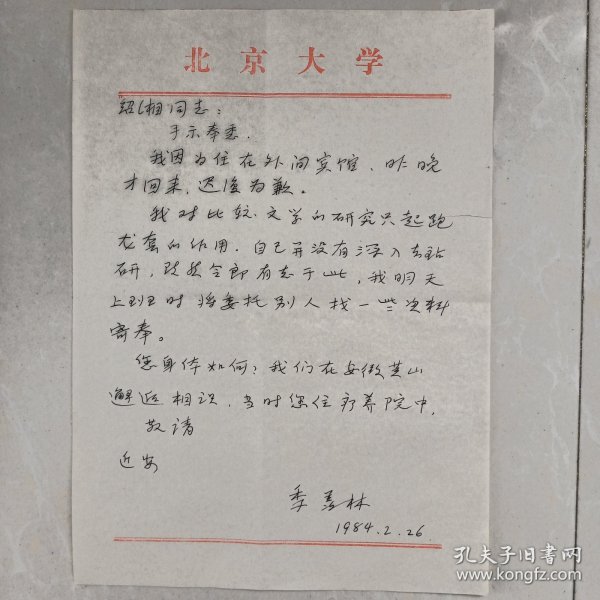 北京大学
绍湘同志：
手示奉悉.
我因为住在外间宾馆、昨晚
才回来，迟复为歉。
我对比较文学的研究只起跑
龙套的作用．自己并没有深入去钻
研，既然令郎有志于此，我明天
上班时将委托别人找一些资料
寄奉。
您身体如何？我们在安徽黄山
邂逅相识，当时您住疗养院中，
敬请
近安
季羡林
1984.2.26
孔夫子旧书网
www.kongfz.com